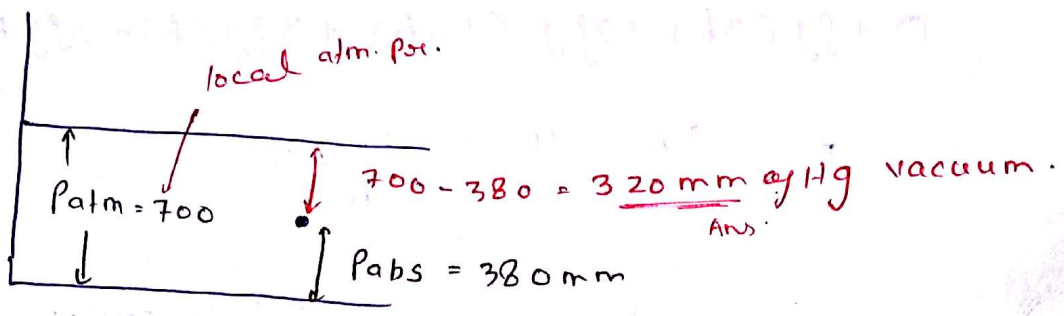 local atm. pre.
Patm = 700
700 - 380 = 320 mm of Hg vacuum.
Ans.
Pabs = 380 mm